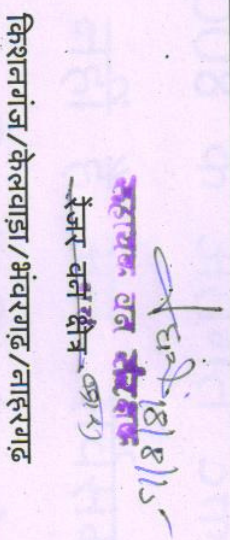 18/8/15
सहायक वन संरक्षक
रेंजर वन क्षेत्र
किशनगंज/केलवाड़ा/भंवरगढ/नाहरगढ